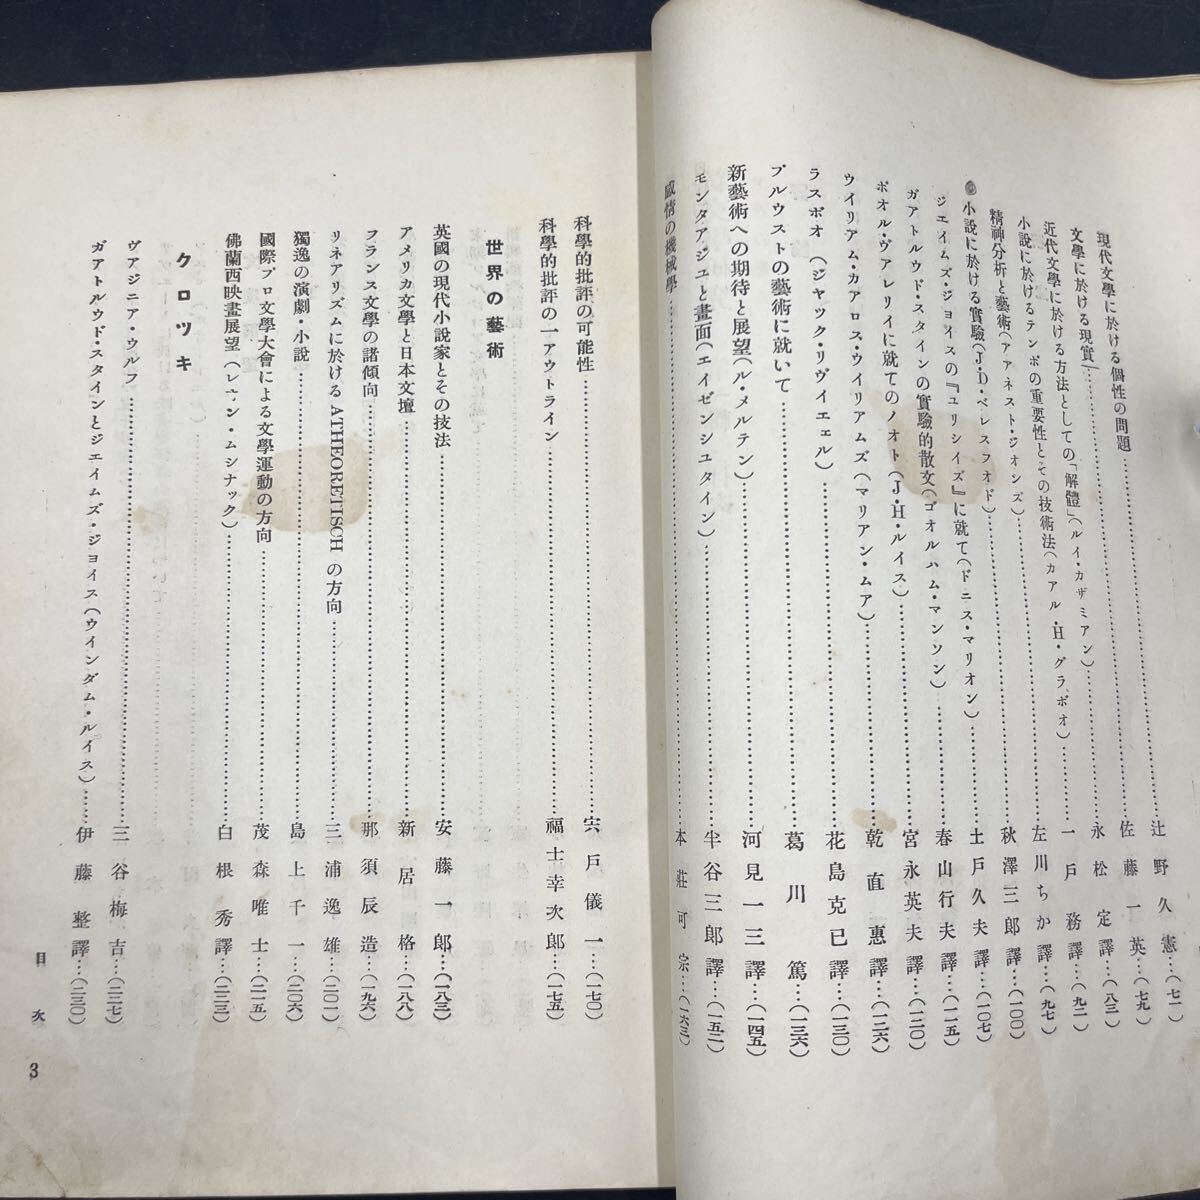 現代文學に於ける個性の問題……辻野久憲…(七一)
文學に於ける現實……佐藤一英…(七九)
近代文學に於ける方法としての「解體」(ルイ・カザミアン)……永松定譯…(八三)
小說に於けるテンポの重要性とその技術法(カアル・H・グラボオ)……一戸務譯…(九二)
精神分析と藝術(アアネスト・ジオンズ)……左川ちか譯…(九七)
小說に於ける實驗(J・D・ベレスフオド)……秋澤三郎譯…(一〇〇)
ジエイムズ・ジヨイスの『ユリシイズ』に就て(ドニス・マリオン)……土戸久夫譯…(一〇七)
ガアトルウド・スタインの實驗的散文(ゴオルハム・マンソン)……春山行夫譯…(一一五)
ポオル・ヴアレリイに就てのノオト(J・H・ルイス)……宮永英夫譯…(一二〇)
ウイリアム・カアロス・ウイリアムズ(マリアン・ムア)……乾直惠譯…(一二六)
ラスボオ(ジヤツク・リヴイエル)……花島克已譯…(一三〇)
プルウストの藝術に就いて……葛川篤…(一三六)
新藝術への期待と展望(ル・メルテン)……河見一三譯…(一四五)
モンタアジユと畫面(エイゼンシユタイン)……半谷三郎譯…(一五二)
感情の機械學……本莊可宗…(一六三)
科學的批評の可能性……宍戸儀一…(一七〇)
科學的批評の一アウトライン……福士幸次郎…(一七五)
世界の藝術
英國の現代小說家とその技法……安藤一郎…(一八三)
アメリカ文學と日本文壇……新居格…(一八八)
フランス文學の諸傾向……那須辰造…(一九六)
リネアリズムに於けるATHEORETISCHの方向……三浦逸雄…(二〇一)
獨逸の演劇・小說……島上千一…(二〇六)
國際プロ文學大會による文學運動の方向……茂森唯士…(二一五)
佛蘭西映畫展望(レオン・ムシナツク)……白根秀譯…(二二三)
クロツキ
ヴアジニア・ウルフ……三谷梅吉…(二二七)
ガアトルウド・スタインとジエイムズ・ジヨイス(ウインダム・ルイス)……伊藤整譯…(二三〇)
目次
3